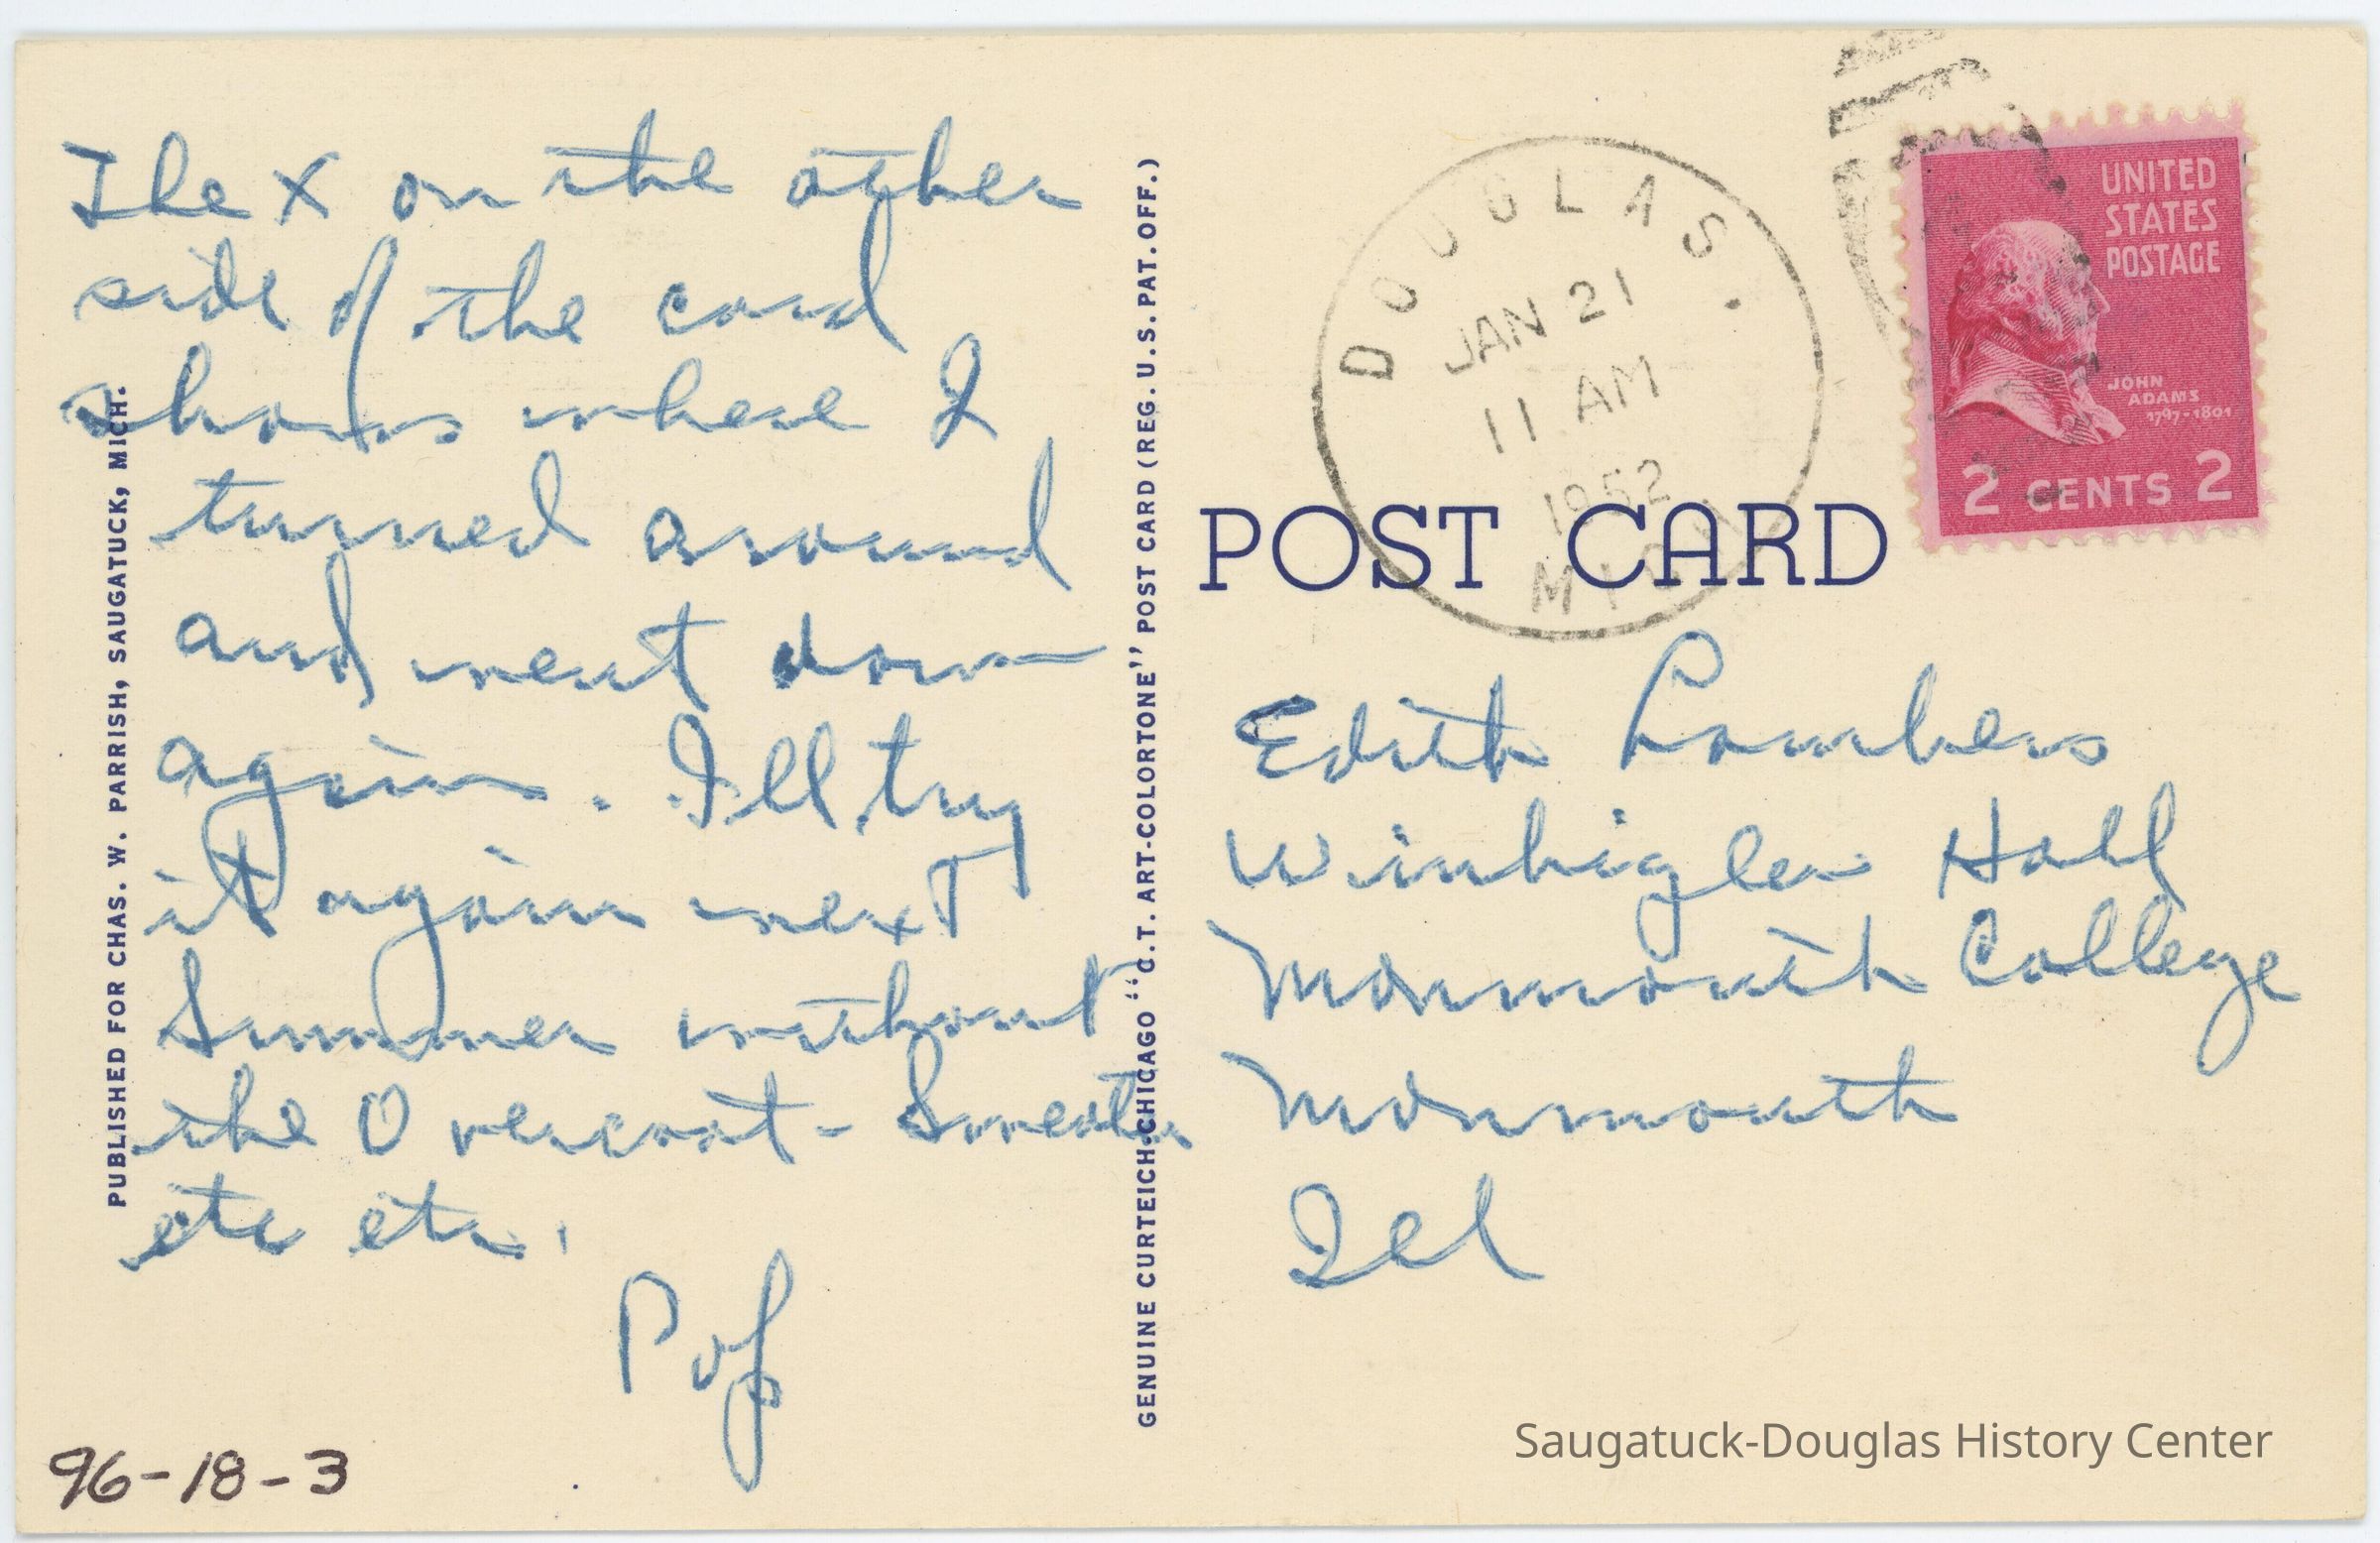 The X on the other
side of the card
shows where I
turned around
and went down
again. I'll try
it again next
Summer without
the Overcoat - Sweater
etc etc.
Pop
96-18-3
PUBLISHED FOR CHAS. W. PARRISH, SAUGATUCK, MICH.
GENUINE CURTEICH-CHICAGO "C.T. ART-COLORTONE" POST CARD (REG. U.S. PAT. OFF.)
DOUGLAS.
JAN 21
11 AM
1952
MICH
UNITED
STATES
POSTAGE
JOHN
ADAMS
1797-1801
2 CENTS 2
POST CARD
Edith Lambers
Winbigler Hall
Monmouth College
Monmouth
Ill
Saugatuck-Douglas History Center